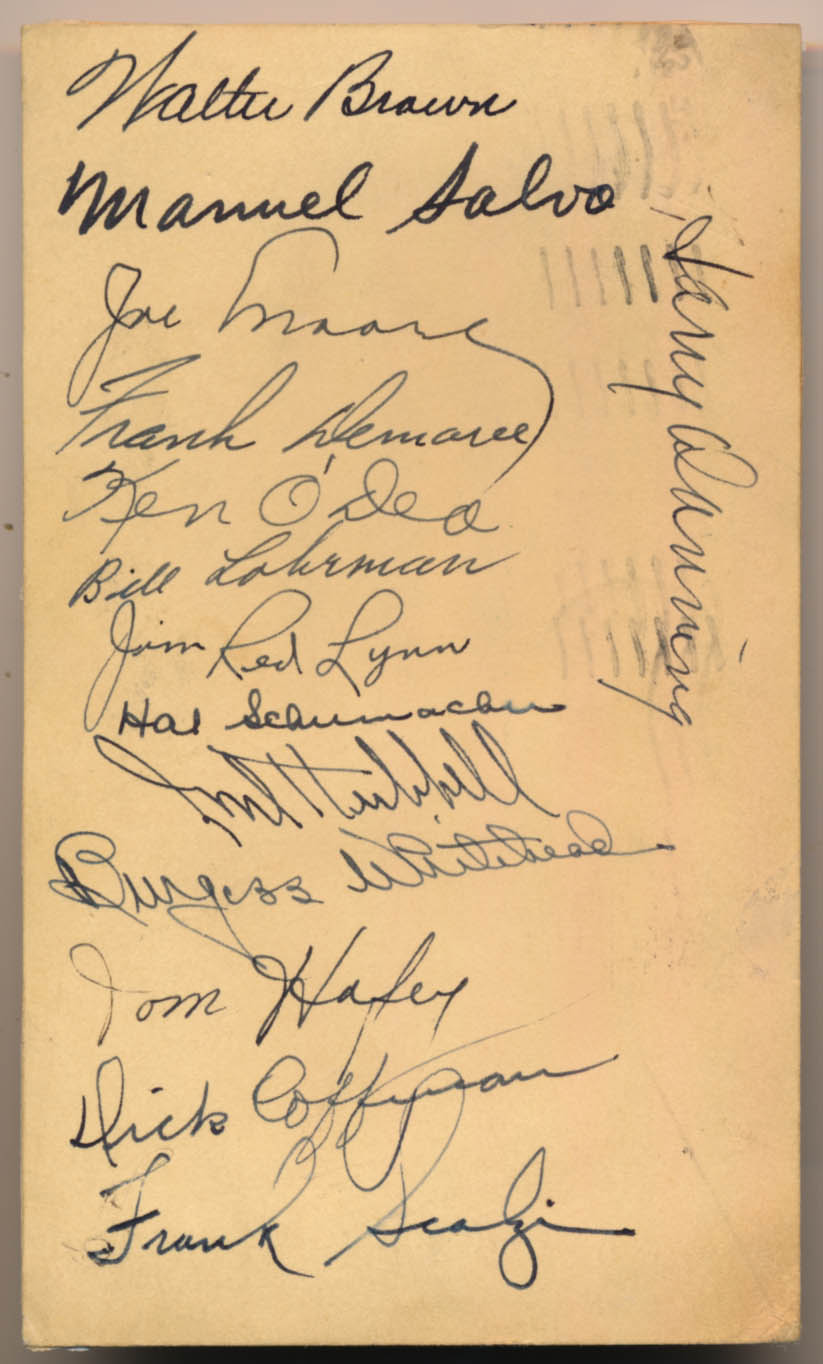 Walter Brown
Manuel Salvo
Joe Moore
Frank Demaree
Ken O'Dea
Bill Lohrman
Jim Red Lynn
Hal Schumacher
Carl Hubbell
Burgess Whitehead
Tom Hafey
Dick Coffman
Frank Scalzi
Harry Danning